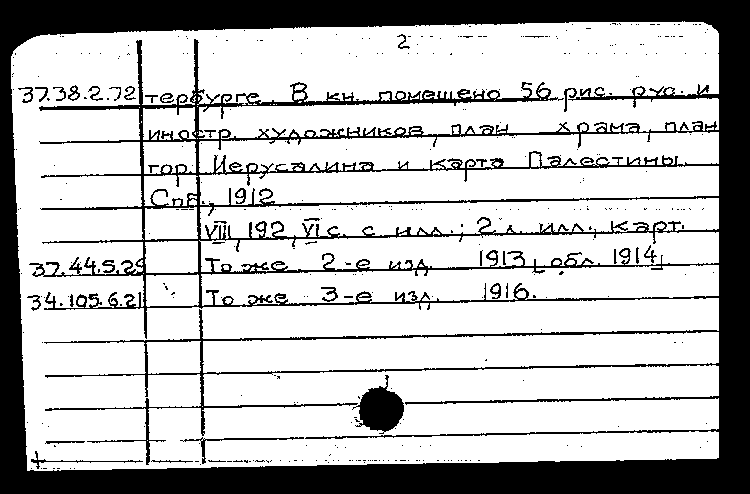 2
37.38.2.72 тербурге. В кн. помещено 56 рис. рус. и
иностр. художников, план храма, план
гор. Иерусалима и карта Палестины.
Спб., 1912
VIII, 192, VI с. с илл.; 2 л. илл., карт.
37.44.5.29 То же 2-е изд. 1913 [обл. 1914]
34.105.6.21 То же 3-е изд. 1916.